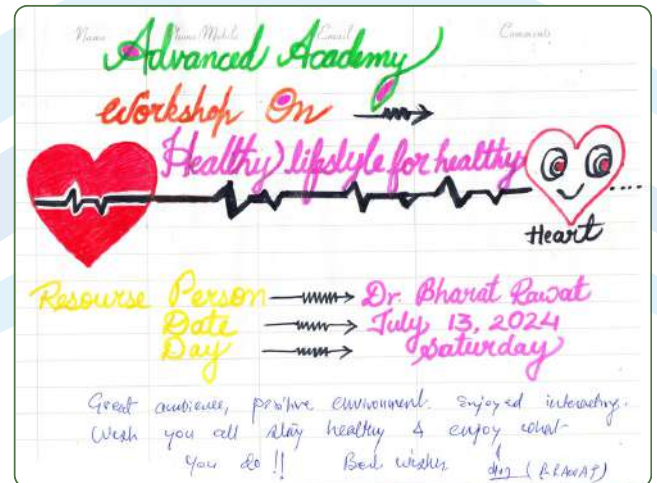 Name Phone/Mobile Email Comments
Advanced Academy
Workshop On
Healthy lifestyle for healthy
Heart
Resourse Person Dr. Bharat Rawat
Date July 13, 2024
Day Saturday
Great ambience, positive environment. Enjoyed interacting.
Wish you all stay healthy & enjoy what
you do !! Best wishes (B RAWAT)